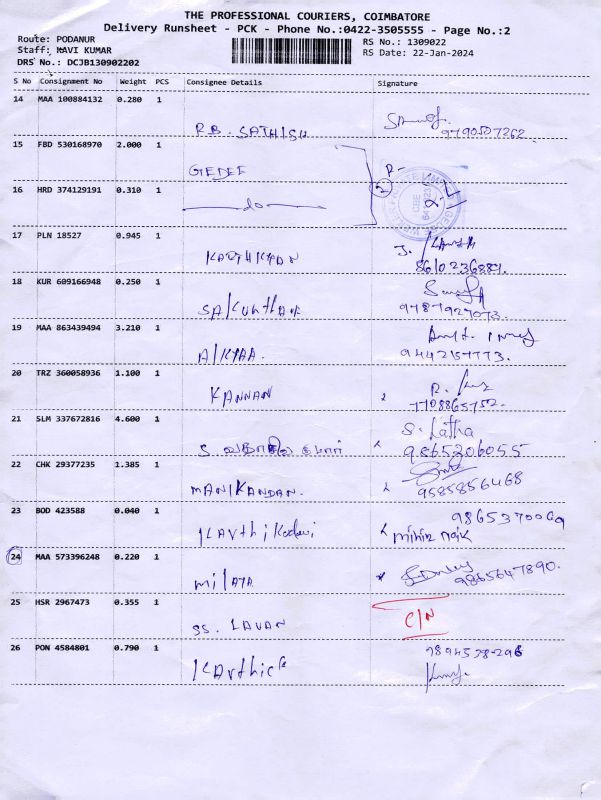 THE PROFESSIONAL COURIERS, COIMBATORE
Delivery Runsheet - PCK - Phone No.:0422-3505555 - Page No.:2
Route: PODANUR
RS No.: 1309022
Staff: MAVI KUMAR
RS Date: 22-Jan-2024
DRS No.: DCJB130902202
S No Consignment No Weight PCS Consignee Details Signature
14 MAA 100884132 0.280 1
R.B. SATHISH 9790507262
15 FBD 530168970 2.000 1
GEDEE
16 HRD 374129191 0.310 1
do 2
17 PLN 18527 0.945 1
KARTHIKYAN
8610236887.
18 KUR 609166948 0.250 1
9787927073.
19 MAA 863439494 3.210 1
9442157773.
20 TRZ 360058936 1.100 1
KANNAN
7708865752.
21 SLM 337672816 4.600 1
S. Latha
9865206055
22 CHK 29377235 1.385 1
MANIKANDAN.
9585856468
23 BOD 423588 0.040 1
9865370069
mihir naik
24 MAA 573396248 0.220 1
9865647890.
25 HSR 2967473 0.355 1
SS. LAVAN C/N
26 PON 4584801 0.790 1
7894538296
Karthick